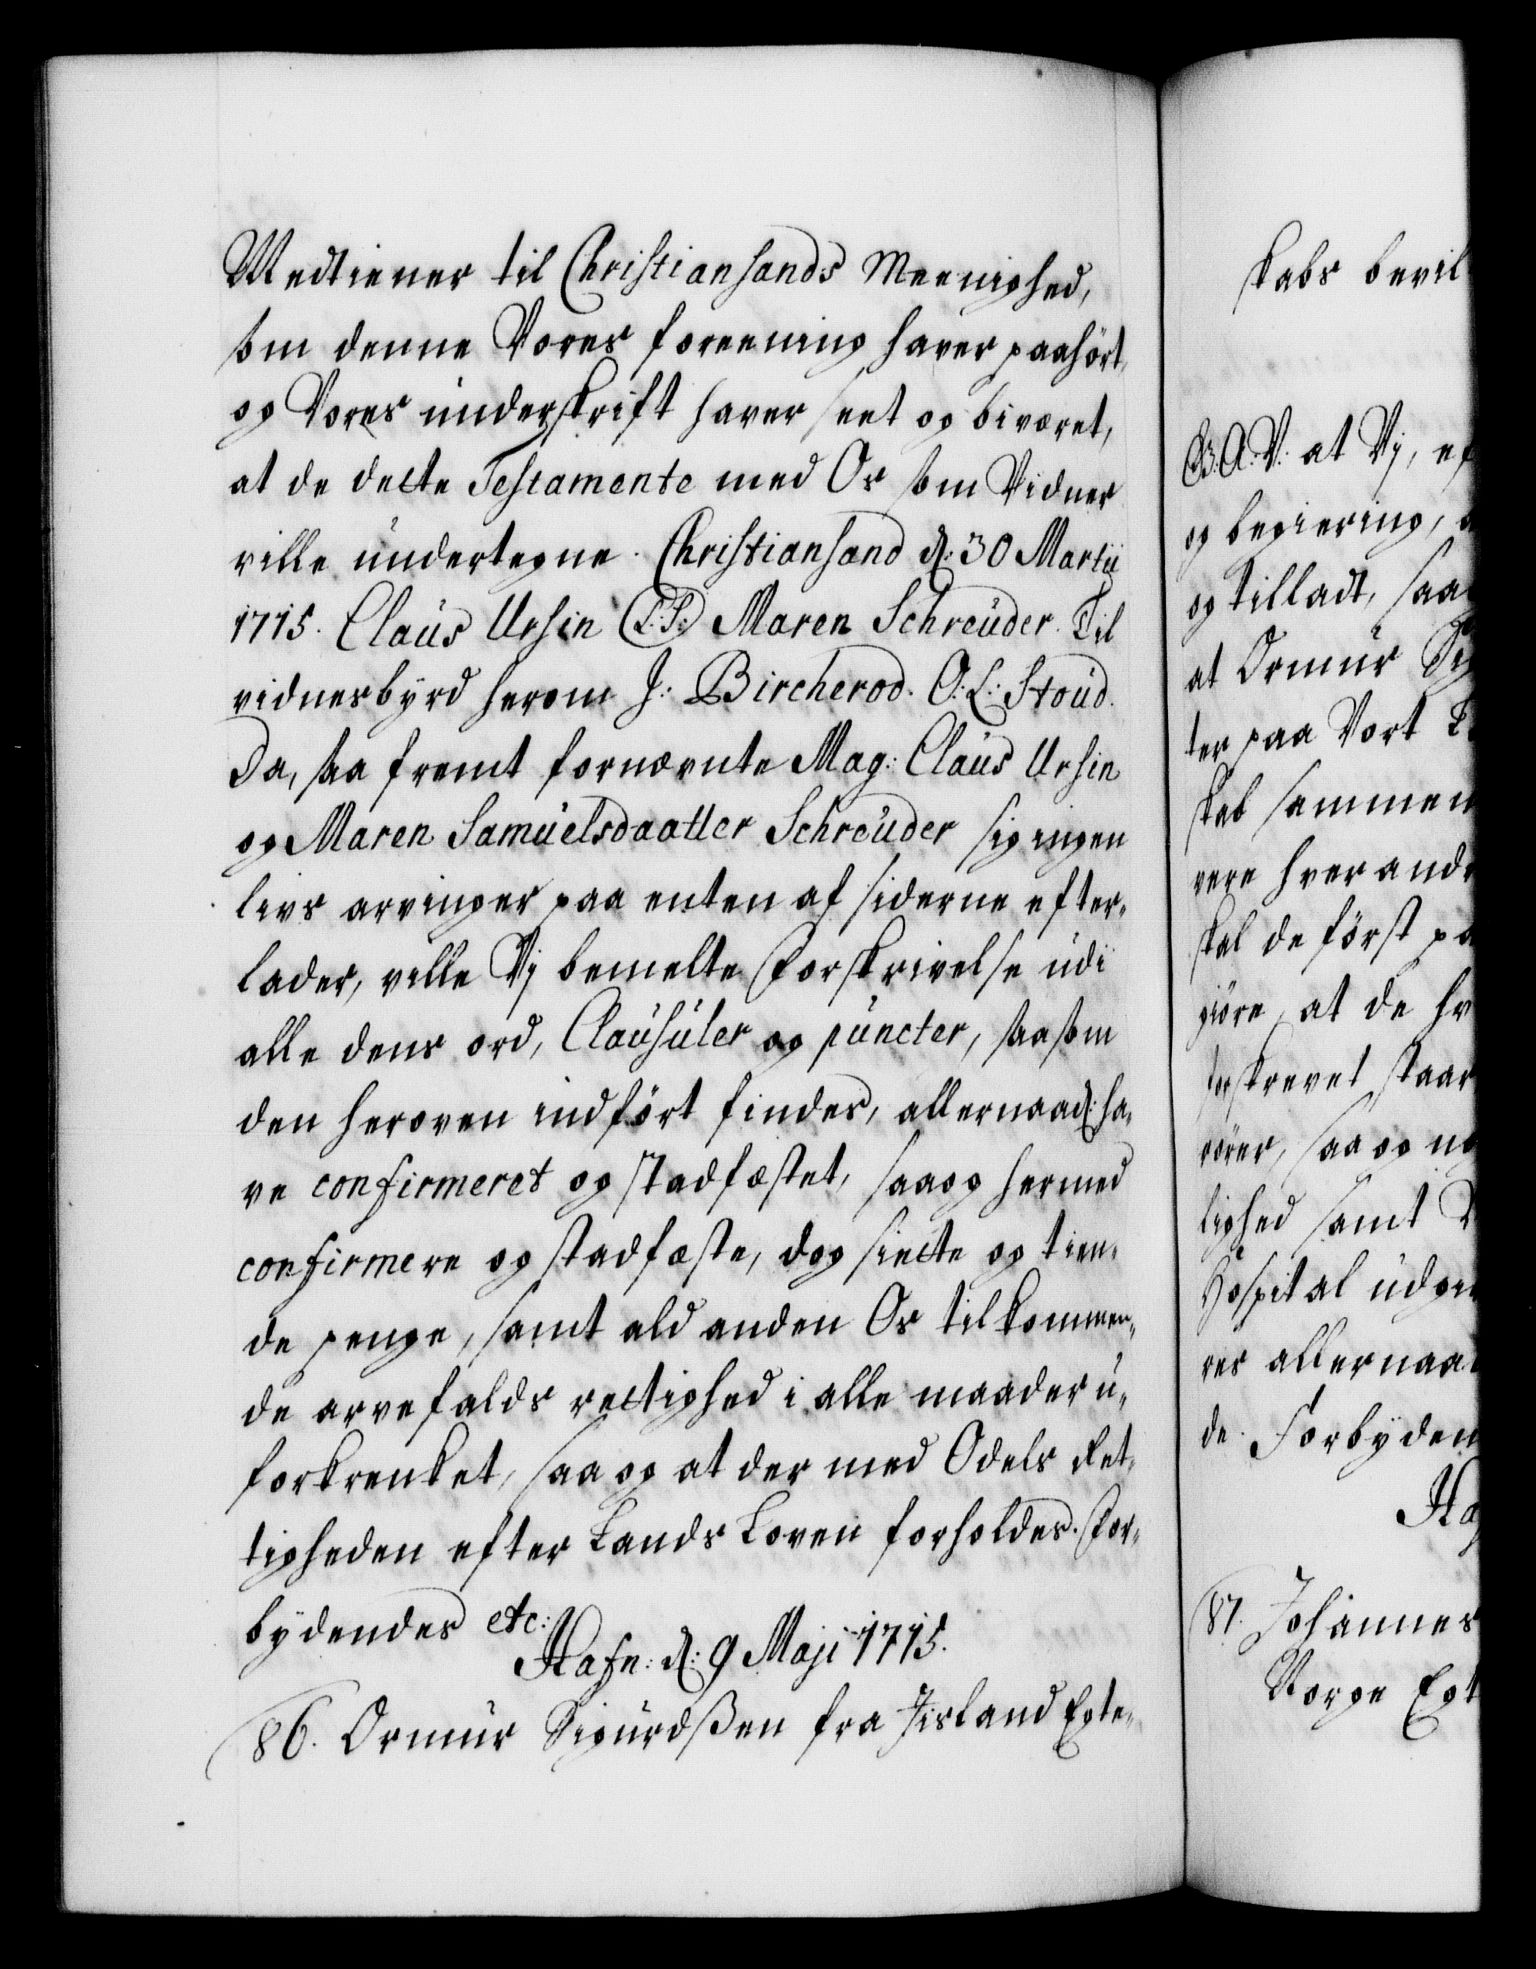 Medtiener til Christiansands Meenighed,
som denne Vores foreening haver paahört,
og Vores underskrift haver seet og biværet,
at de dette Testamente med Os som Vidner
ville undertegne. Christiansand d: 30 Martii
1715. Claus Ursin (L.S.) Maren Schreuder. Til
vidnesbyrd herom J: Bircherod. O: L: Stoud.
Da, saa fremt fornævnte Mag: Claus Ursin
og Maren Samuelsdaatter Schreuder sig ingen
livs arvinger paa enten af siderne efter-
lader, ville Vj bemelte Forskrivelse udi
alle dens ord, Clausuler og puncter, saasom
den heroven indfört findes, allernaad: ha-
ve confirmeret og stadfæstet, saa og hermed
confirmere og stadfæste, dog siette og tien-
de penge, samt ald anden Os tilkommen-
de arvefalds rettighed i alle maader u-
forkrenket, saa og at der med Odels Ret-
tigheden efter Lands Loven forholdes. For-
bydendes etc:
Hafn: d: 9 Maji 1715.
86. Ormur Sigurdßen fra Jisland Egte-
skabs bevil
G. A. V. at Vj, ef
og begiering,
og tilladt, saa
at Ormur Sig
ter paa Vort
skab sammen
vere hverandr
skal de först pa
giöre, at de
forskrevet staar
rörer, saa og
lighed samt
Hospital udgi
res allernaa
de. Forbyden
Haf
87. Johannes
Norge Egt